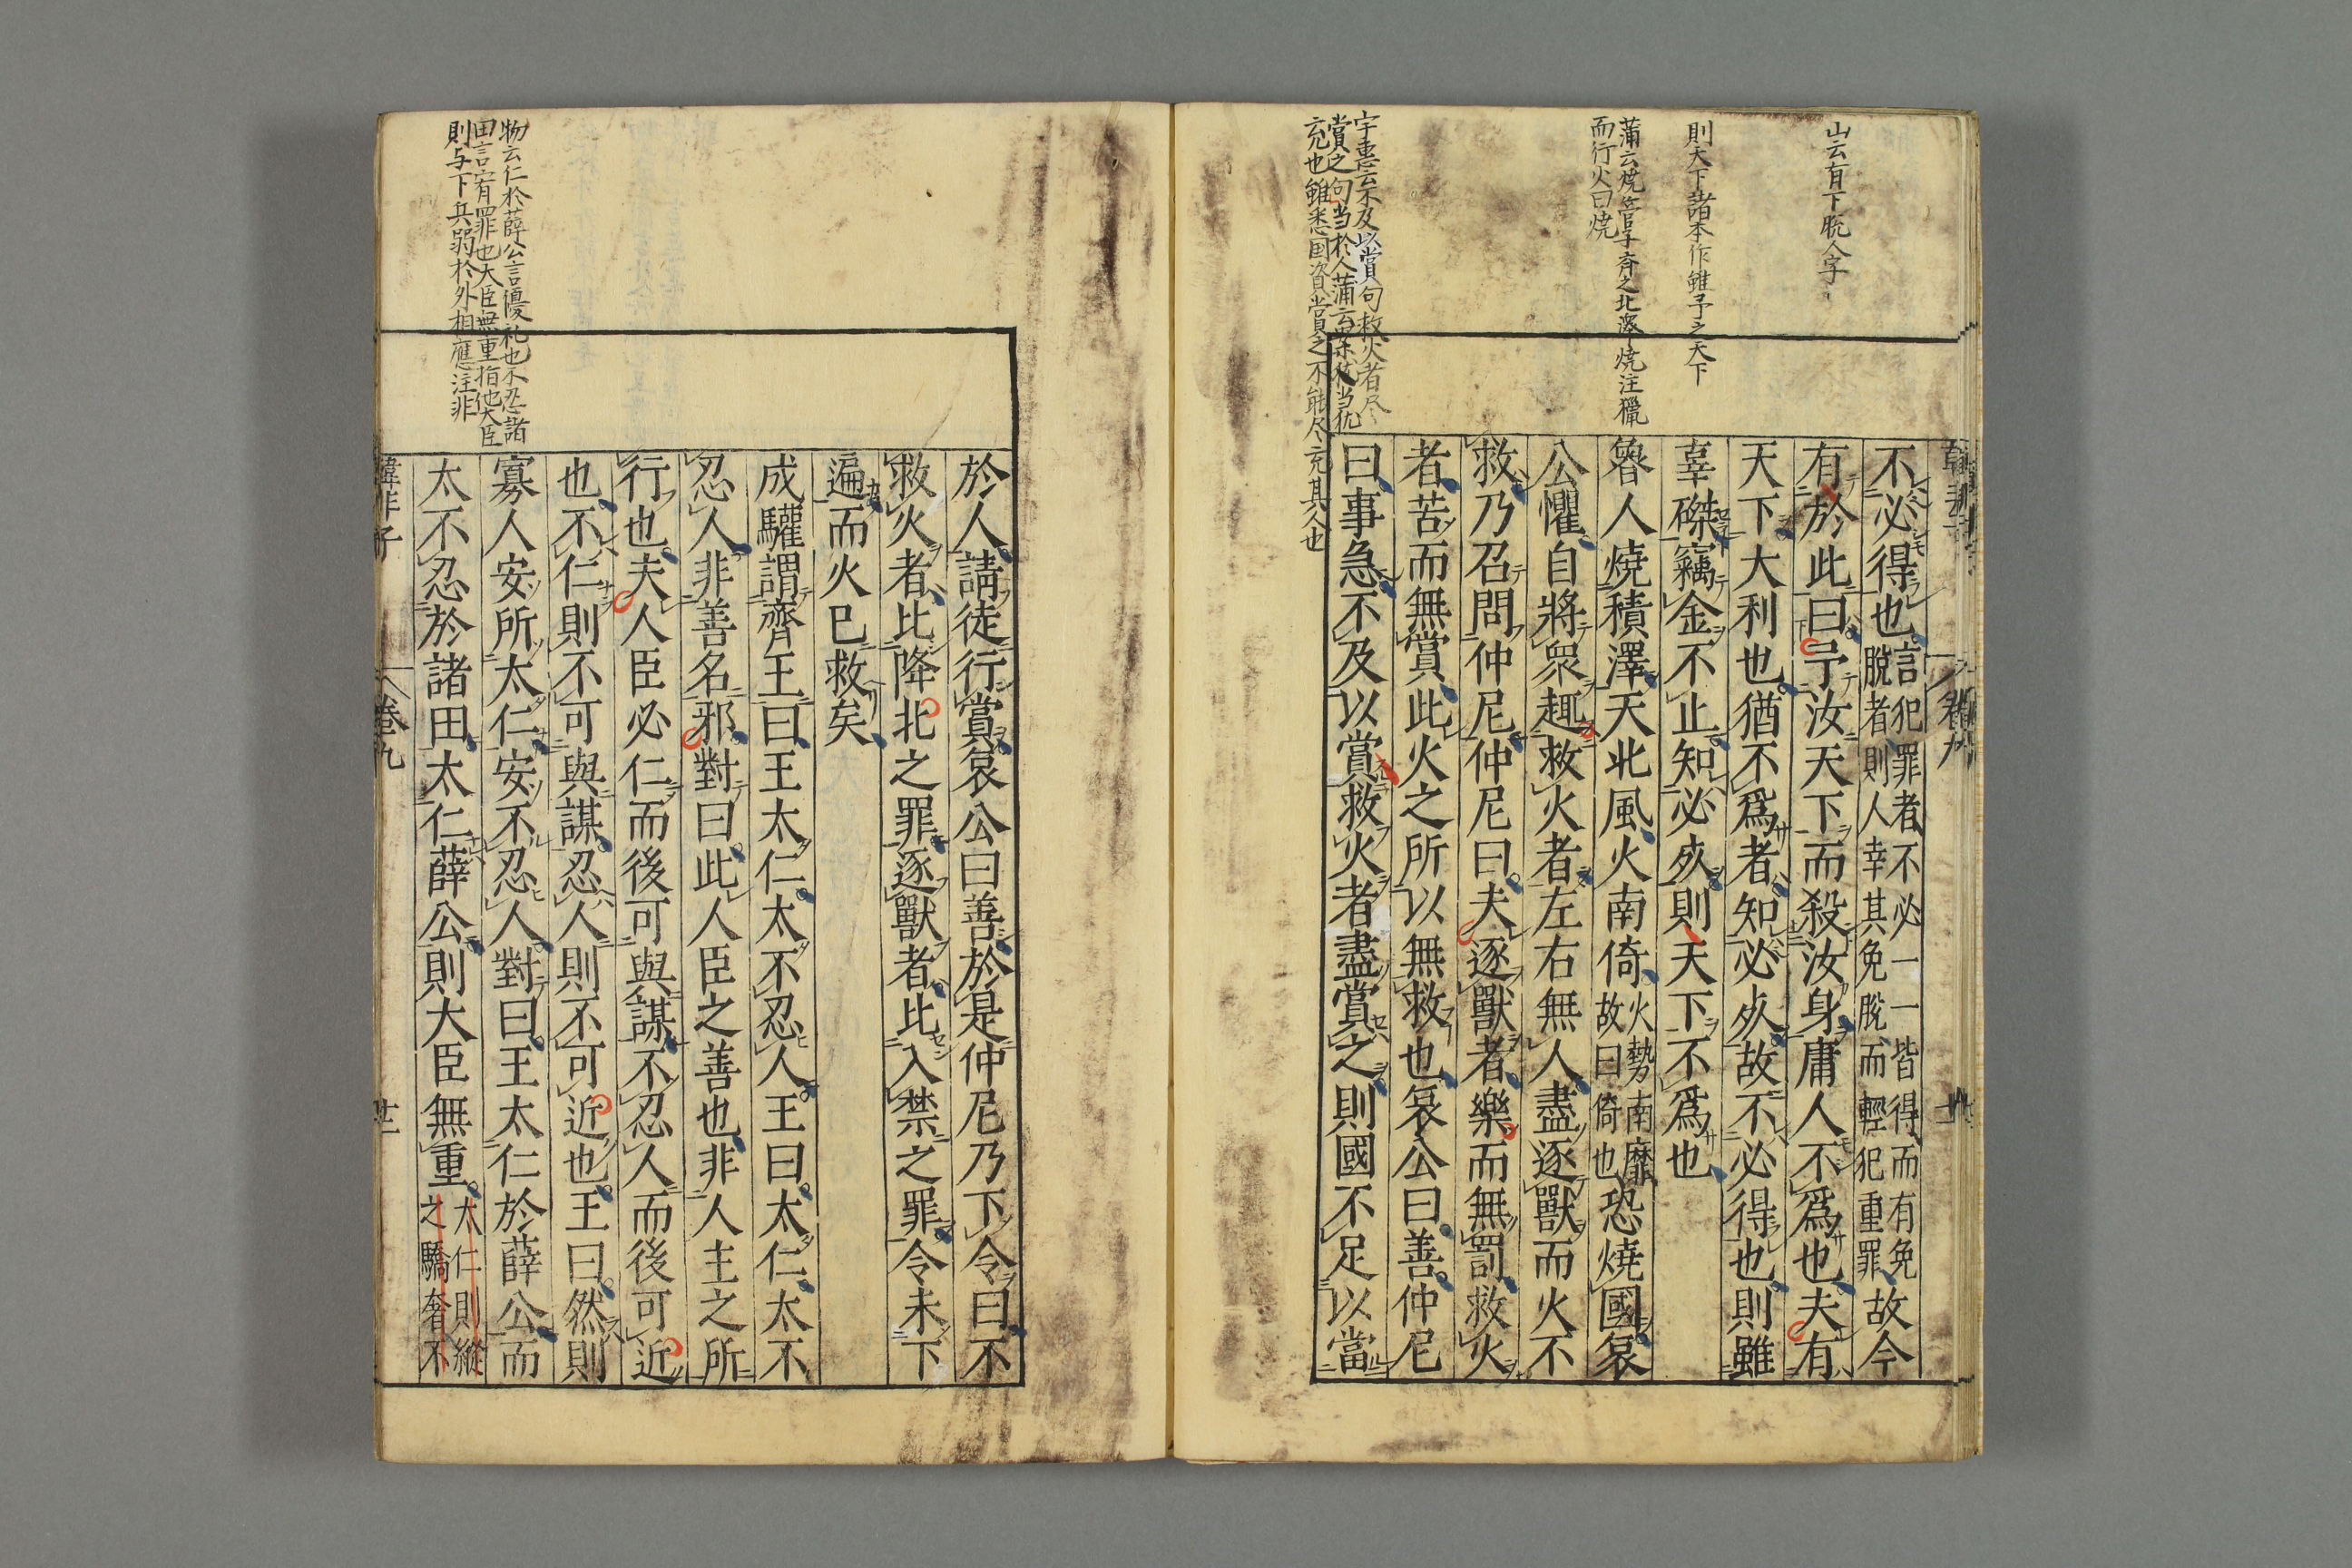 山云有下脫人字
則天下諸本作雖予之天下
蒲云燒管子齊之北澤燒注獵
而行火曰燒
宇惠云不及以賞句救火者尽
賞之句当於人蒲云
充也雖悉国資賞之不能尽充其人也
不必得也言犯罪者不必一一皆得而有免
脫者則人幸其免脫而輕犯重罪故今
有於此曰予汝天下而殺汝身庸人不爲也夫有
天下大利也猶不爲者知必死故不必得也則雖
辜磔竊金不止知必死則天下不爲也
魯人燒積澤天北風火南倚火勢南靡
故曰倚也恐燒國哀
公懼自將衆趣救火者左右無人盡逐獸而火不
救乃召問仲尼仲尼曰夫逐獸者樂而無罰救火
者苦而無賞此火之所以無救也哀公曰善仲尼
曰事急不及以賞救火者盡賞之則國不足以當
於人請徒行賞哀公曰善於是仲尼乃下令曰不
救火者比降北之罪逐獸者比入禁之罪令未下
遍而火已救矣
成驩謂齊王曰王太仁太不忍人王曰太仁太不
忍人非善名邪對曰此人臣之善也非人主之所
行也夫人臣必仁而後可與謀不忍人而後可近
也不仁則不可與謀忍人則不可近也王曰然則
寡人安所太仁安不忍人對曰王太仁於薛公而
太不忍於諸田太仁薛公則大臣無重太仁則縱
之驕奢不
韓非子 卷九 廿一
物云仁於薛公言優礼也不忍諸
田言宥罪也大臣無重指他大臣
則与下兵弱於外相應注非